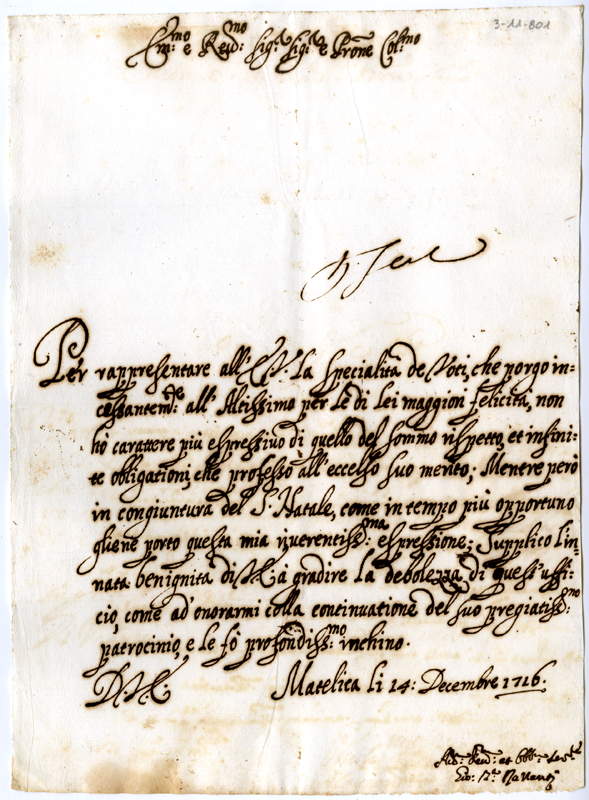 3-11-801
Em.mo e Revd.mo Sig.r Sig.r e Prone Col.mo
Per rappresentare all'E.V. la specialità de Voti, che porgo in=
cessantem.te all'Altissimo per le di lei maggiori felicità, non
hò carattere più espressivo di quello del sommo rispetto, et infini=
te obligationi, che professo all'eccelso suo merito; Mentre però
in congiuntura del S. Natale, come in tempo più opportuno
gliene porto questa mia riverentiss.ma espressione; Supplico l'in=
nata benignità di V.E. à gradire la debolezza di quest'uffi=
cio, come ad'onorarmi colla continuatione del suo pregiatiss.mo
patrocinio, e le fò profondiss.mo inchino.
D.V.E. Matelica li 14: Decembre 1716.